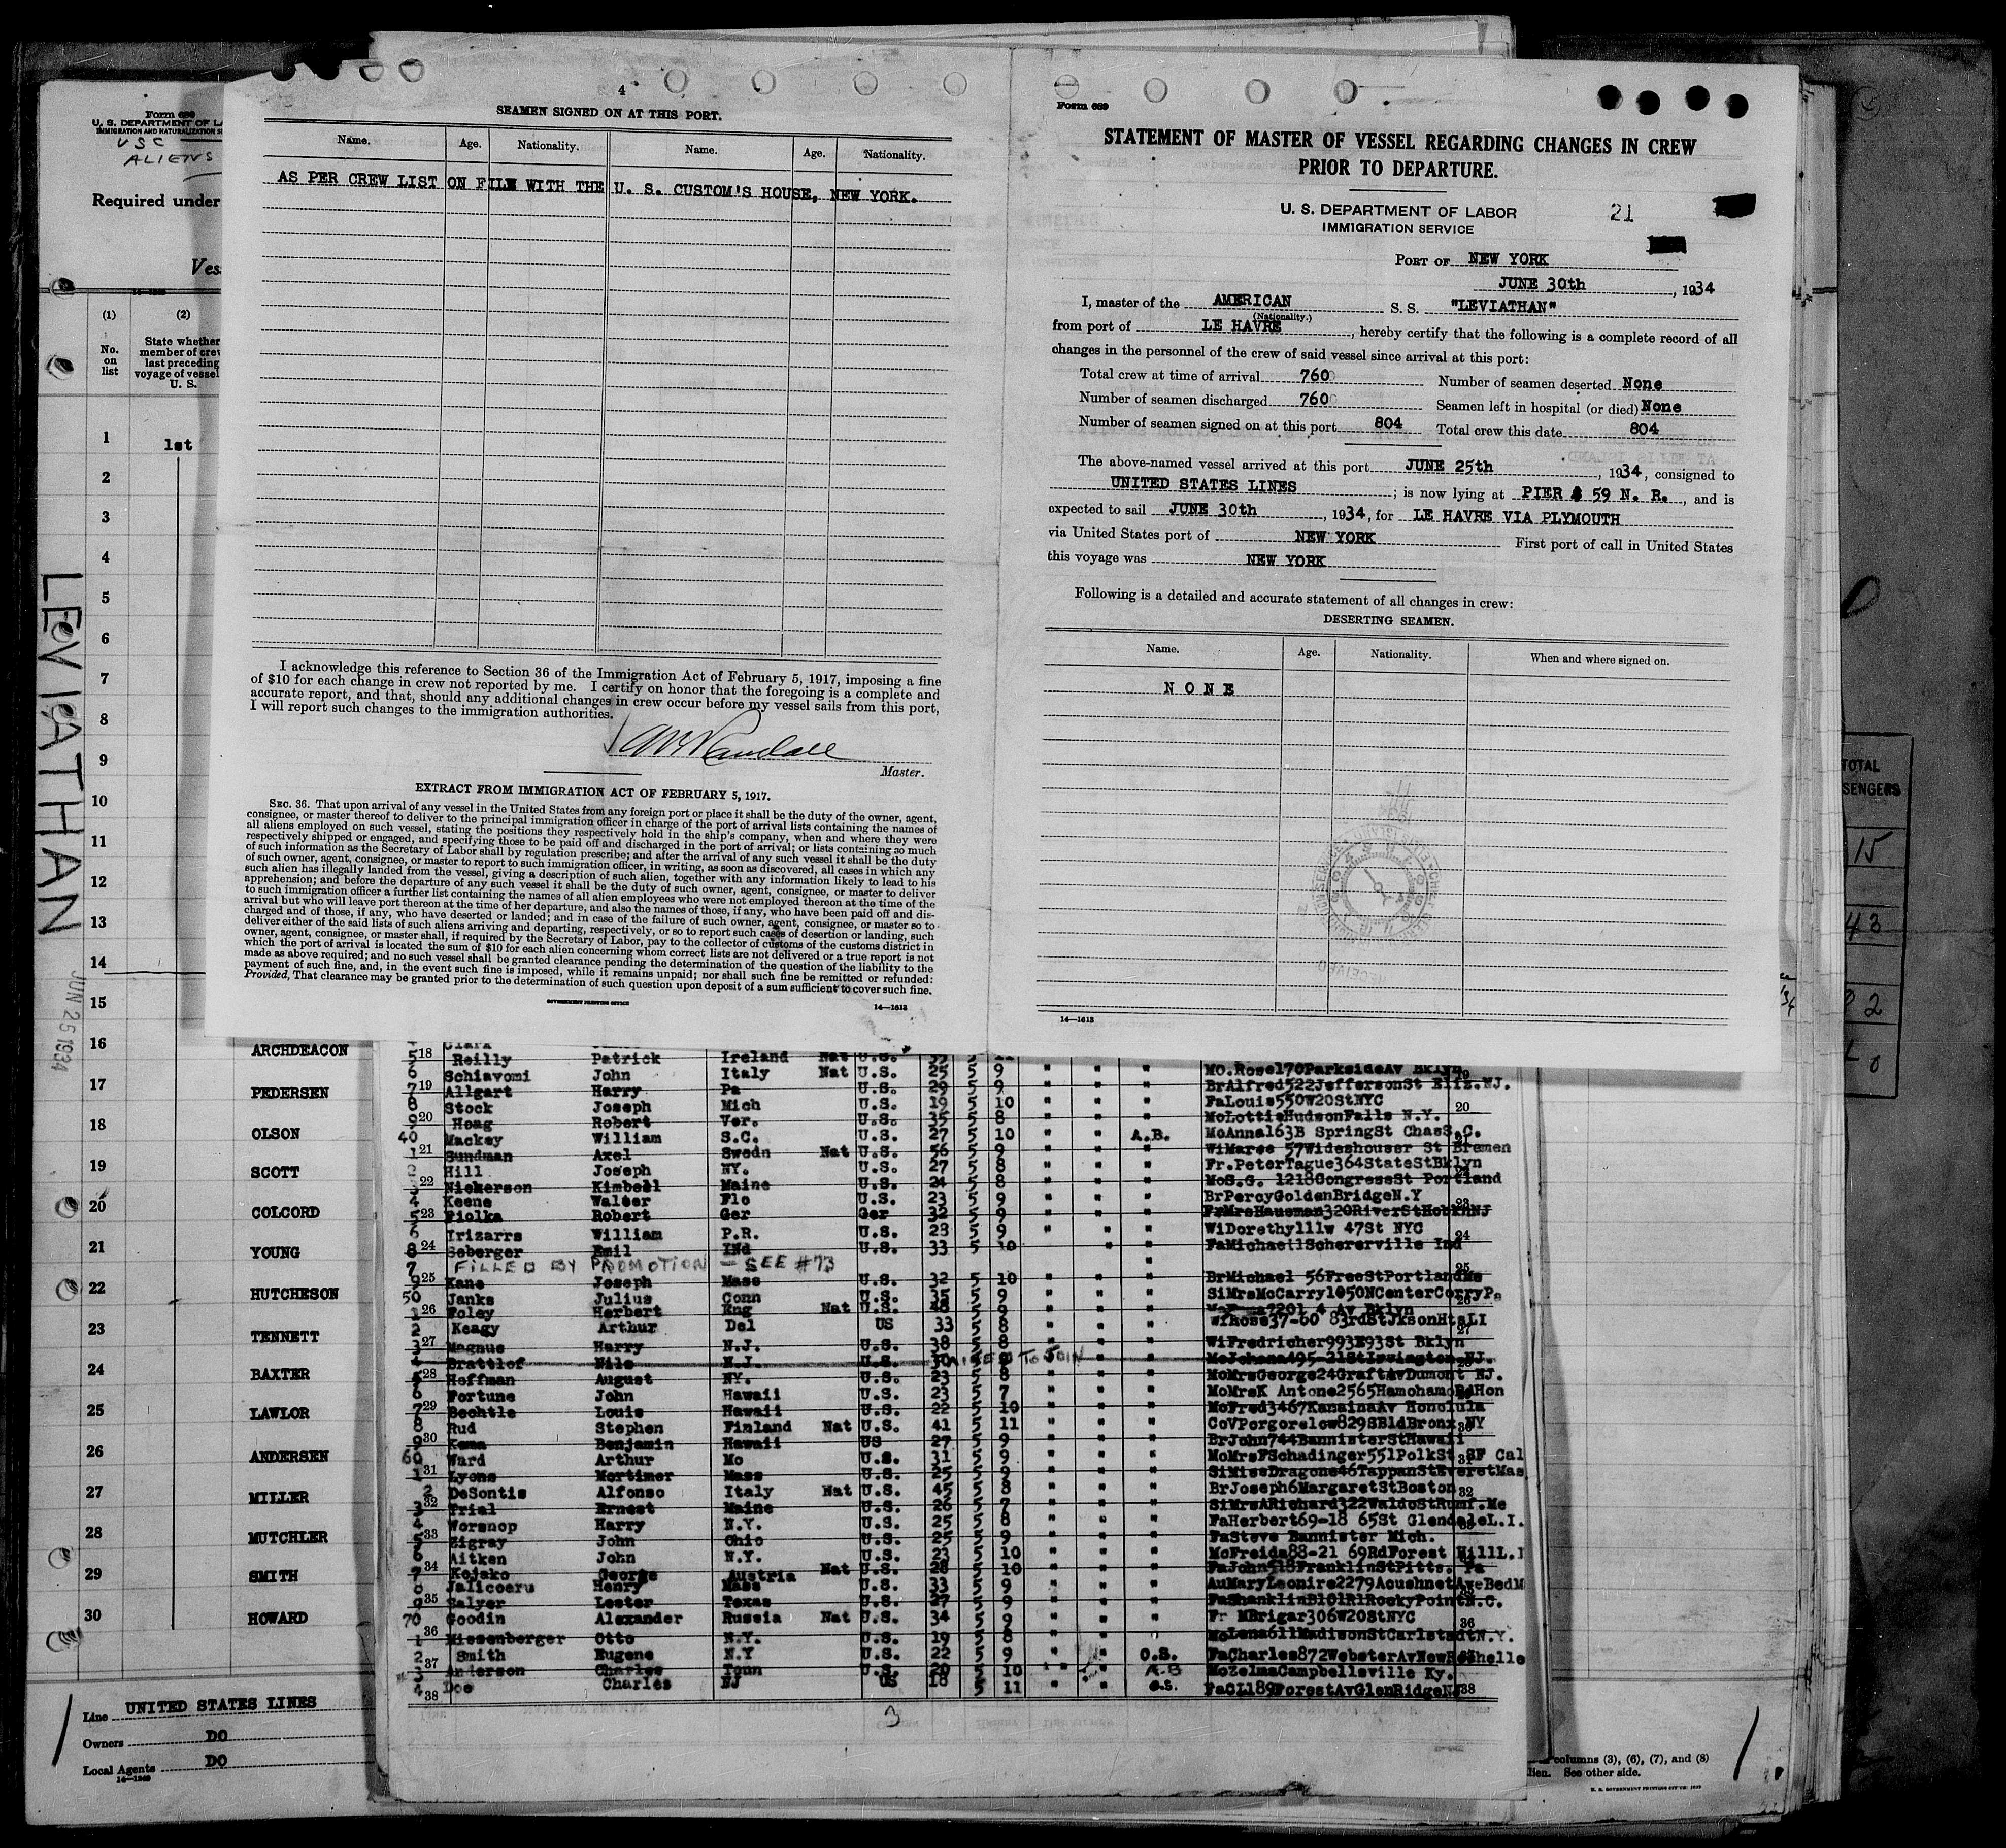 4
SEAMEN SIGNED ON AT THIS PORT.
Name. Age. Nationality. Name. Age. Nationality.
AS PER CREW LIST ON FILE WITH THE U. S. CUSTOM'S HOUSE, NEW YORK.
I acknowledge this reference to Section 36 of the Immigration Act of February 5, 1917, imposing a fine
of $10 for each change in crew not reported by me. I certify on honor that the foregoing is a complete and
accurate report, and that, should any additional changes in crew occur before my vessel sails from this port,
I will report such changes to the immigration authorities.
Master.
EXTRACT FROM IMMIGRATION ACT OF FEBRUARY 5, 1917.
SEC. 36. That upon arrival of any vessel in the United States from any foreign port or place it shall be the duty of the owner, agent,
consignee, or master thereof to deliver to the principal immigration officer in charge of the port of arrival lists containing the names of
all aliens employed on such vessel, stating the positions they respectively hold in the ship's company, when and where they were
respectively shipped or engaged, and specifying those to be paid off and discharged in the port of arrival; or lists containing so much
of such information as the Secretary of Labor shall by regulation prescribe; and after the arrival of any such vessel it shall be the duty
of such owner, agent, consignee, or master to report to such immigration officer, in writing, as soon as discovered, all cases in which any
such alien has illegally landed from the vessel, giving a description of such alien, together with any information likely to lead to his
apprehension; and before the departure of any such vessel it shall be the duty of such owner, agent, consignee, or master to deliver
to such immigration officer a further list containing the names of all alien employees who were not employed thereon at the time of the
arrival but who will leave port thereon at the time of her departure, and also the names of those, if any, who have been paid off and dis-
charged and of those, if any, who have deserted or landed; and in case of the failure of such owner, agent, consignee, or master so to
deliver either of the said lists of such aliens arriving and departing, respectively, or so to report such cases of desertion or landing, such
owner, agent, consignee, or master shall, if required by the Secretary of Labor, pay to the collector of customs of the customs district in
which the port of arrival is located the sum of $10 for each alien concerning whom correct lists are not delivered or a true report is not
made as above required; and no such vessel shall be granted clearance pending the determination of the question of the liability to the
payment of such fine, and, in the event such fine is imposed, while it remains unpaid; nor shall such fine be remitted or refunded:
Provided, That clearance may be granted prior to the determination of such question upon deposit of a sum sufficient to cover such fine.
GOVERNMENT PRINTING OFFICE 14—1613
Form 689
STATEMENT OF MASTER OF VESSEL REGARDING CHANGES IN CREW
PRIOR TO DEPARTURE.
U. S. DEPARTMENT OF LABOR
IMMIGRATION SERVICE
21
PORT OF NEW YORK
JUNE 30th, 1934
I, master of the AMERICAN S. S. "LEVIATHAN"
(Nationality.)
from port of LE HAVRE, hereby certify that the following is a complete record of all
changes in the personnel of the crew of said vessel since arrival at this port:
Total crew at time of arrival 760 Number of seamen deserted None
Number of seamen discharged 760 Seamen left in hospital (or died) None
Number of seamen signed on at this port 804 Total crew this date 804
The above-named vessel arrived at this port JUNE 25th, 1934, consigned to
UNITED STATES LINES; is now lying at PIER 59 N. R., and is
expected to sail JUNE 30th, 1934, for LE HAVRE VIA PLYMOUTH
via United States port of NEW YORK First port of call in United States
this voyage was NEW YORK
Following is a detailed and accurate statement of all changes in crew:
DESERTING SEAMEN.
Name. Age. Nationality. When and where signed on.
NONE
14—1613
Form 680
U. S. DEPARTMENT OF LA
IMMIGRATION AND NATURALIZATION SE
USC
ALIENS
Required under
Ves
(1) (2)
No. on list
State whether
member of crew
last preceding
voyage of vessel
U. S.
1 1st
2
3
4
5
6
7
8
9
10
11
12
13
14
15
16 ARCHDEACON
17 PEDERSEN
18 OLSON
19 SCOTT
20 COLCORD
21 YOUNG
22 HUTCHESON
23 TENNETT
24 BAXTER
25 LAWLOR
26 ANDERSEN
27 MILLER
28 MUTCHLER
29 SMITH
30 HOWARD
LEVIATHAN
JUN 25 1934
Line UNITED STATES LINES
Owners DO
Local Agents DO
14—1240
Clark
5 18 Reilly Patrick Ireland Nat U.S.
6 Schiavomi John Italy Nat U.S. 25 5 9 " " " MO.Rose170ParksideAv Bklyn
7 19 Allgart Harry Pa U.S. 29 5 9 " " " BrAlfred522JeffersonSt Eliz.NJ.
8 Stock Joseph Mich U.S. 19 5 10 " " " FaLouis550W20StNYC
9 20 Hoag Robert Ver. U.S. 35 5 8 " " " MoLottieHudsonFalls N.Y.
40 Mackey William S.C. U.S. 27 5 10 " " A.B. MoAnna163B SpringSt ChasS.C.
1 21 Sundman Axel Swedn Nat U.S. 56 5 9 " " " WiMaree 57Wideshouser St Bremen
2 Hill Joseph NY. U.S. 27 5 8 " " " Fr.PeterTague364StateStBklyn
3 22 Nickerson Kimbell Maine U.S. 24 5 8 " " " MoS.G. 1218CongressSt Portland
4 Keene Walter Flo U.S. 23 5 9 " " " BrPercyGoldenBridgeN.Y
5 23 Fiolka Robert Ger Ger 32 5 9 " " " FrMrsHausman320RiverStHobknNJ
6 Irizarrs William P.R. U.S. 23 5 9 " " " WiDorethy111w 47St NYC
8 24 Seberger Emil INd U.S. 33 5 10 " " FaMichaelSchererville Ind
7 FILLED BY PROMOTION — SEE #73
9 25 Kane Joseph Mass U.S. 32 5 10 " " " BrMichael 56FreeStPortlandMe
50 Janks Julius Conn U.S. 35 5 9 " " " SiMrsMcCarry1050NCenterCorryPa
1 26 Foley Herbert Eng Nat U.S. 48 5 9 " " " 7201 4 Av Bklyn
2 Keagy Arthur Del US 33 5 8 " " " WiRose37-60 83rdStJksonHtsLI
3 27 Magnus Harry N.J. U.S. 38 5 8 " " " WiFredricher993E93St Bklyn
4 Brattlof Nils N.J. U.S. 30 FAILED TO JOIN " MoJohana495-21StIrvington NJ.
5 28 Hoffman August NY. U.S. 23 5 8 " " " MoMrsGeorge24GraftAvDumont NJ.
6 Fortune John Hawaii U.S. 23 5 7 " " " MoMrsK Antone2565HamohamoRdHon
7 29 Bechtle Louis Hawaii U.S. 22 5 10 " " " MoFred3467KanainaAv Honolula
8 Rud Stephen Finland Nat U.S. 41 5 11 " " " CoVPergorelow829SBldBronx NY
9 30 Kema Benjamin Hawaii US 27 5 9 " " " BrJohn744BannisterStHawaii
60 Ward Arthur Mo U.S. 31 5 9 " " " MoMrsFSchadinger551PolkSt SF Cal
1 31 Lyons Mortimer Mass U.S. 25 5 9 " " " SiMissDragone46TappanStEveretMas
2 DeSontis Alfonso Italy Nat U.S. 45 5 8 " " " BrJoseph6MargaretStBoston 32
3 32 Trial Ernest Maine U.S. 26 5 7 " " " SiMrsARichard322WaldoStRumf.Me
4 Worsnop Harry N.Y. U.S. 25 5 8 " " " FaHerbert69-18 65St GlendaleL.I.
5 33 Zigray John Ohio U.S. 25 5 9 " " " FaSteve Bannister Mich.
6 Aitken John N.Y. U.S. 23 5 10 " " " MoFreida88-21 69RdForest HillL.I
7 34 Kojako George Austria Nat U.S. 28 5 10 " " " FaJohn518FranklinStPitts. Pa
8 Jalicoeru Henry Mass U.S. 33 5 9 " " " AuMaryLeonire2279AcushnetAveBedM
9 35 Salyer Lester Texas U.S. 27 5 9 " " " FaShanklinB101R1RockyPointN.C.
70 Goodin Alexander Russia Nat U.S. 34 5 9 " " " Fr MBrigar306W20StNYC 36
1 36 Missenberger Otto N.Y. U.S. 19 5 8 " " " MoLena611MadisonStCarlstadtN.Y.
2 Smith Eugene N.Y U.S. 22 5 9 " " O.S. FaCharles872WebsterAvNewRochelle
3 37 Anderson Charles Tenn U.S. 20 5 10 " " A.B MoZelmaCampbellsville Ky.
4 38 Doe Charles NJ US 18 5 11 " " O.S. FaCL189ForestAvGlenRidgeNJ 38
3
TOTAL
SENGERS
15
43
columns (3), (6), (7), and (8)
lien. See other side.